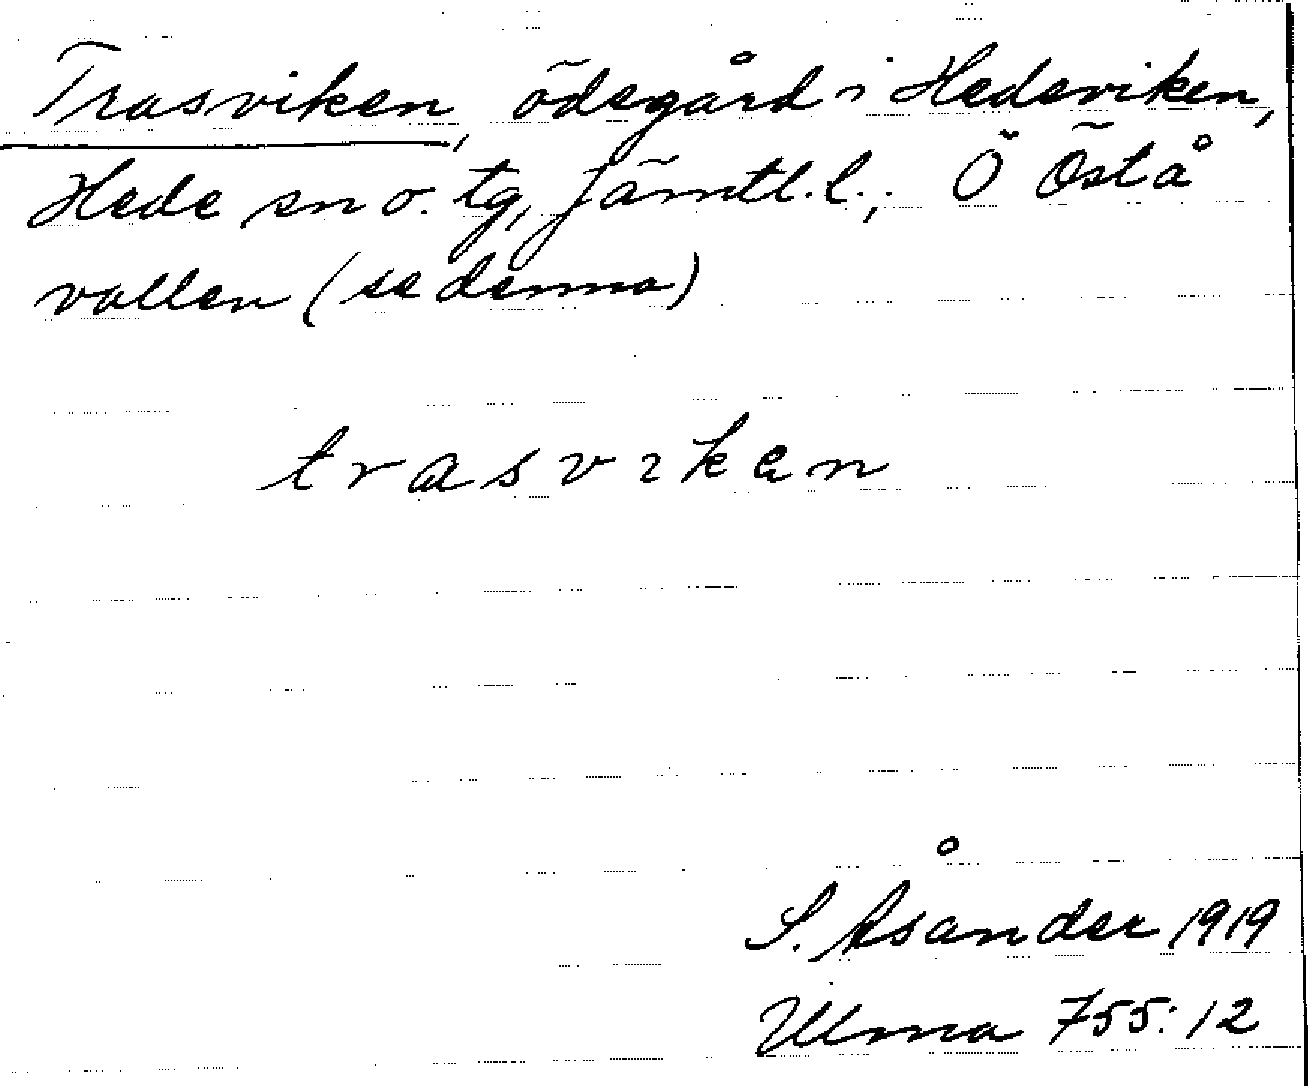 Trasviken, ödegård i Hedeviken,
Hede sn o. tg, Jämtl. l.; Ö Östå
vallen (se denna)
trasvıken
S. Åsander 1919
Ulma 755:12